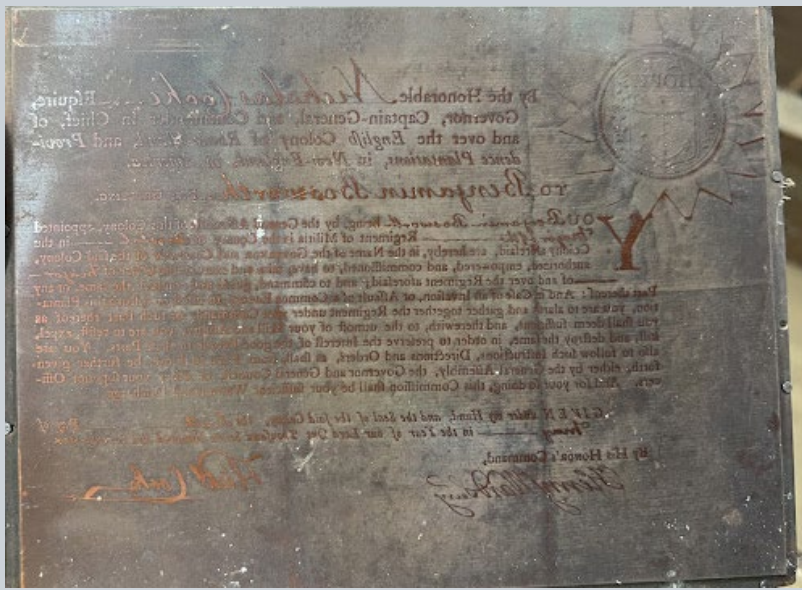 HOPE
By the Honorable Nicholas Cooke Esquire,
Governor, Captain-General, and Commander in Chief, of
and over the English Colony of Rhode and Provi-
dence Plantations, in New-England, in America.
To Benjamin Bosworth
You Benjamin Bosworth being, by the General of the Colony, appointed
Regiment of Militia in the County of in the
Colony aforesaid, are hereby, in the Name of the Governor and Company of the said Colony,
authorized, empowered, and commissioned, to have, take and
of and over the Regiment aforesaid; and to command, the same, or any
Part thereof: And in Case of an Invasion, or Assault of a Common Enemy, to Planta-
tion, you are to alarm and gather together the Regiment under your Part thereof as
you shall deem sufficient, and therewith, to the utmost of your Skill are to resist, expel,
kill, and destroy the same, in order to preserve the Interest of the good You are
also to follow such Instructions, Directions and Orders, as shall, be further given
forth, either by the General Assembly, the Governor and General Council, or your superior Offi-
cers. And for your so doing, this Commission shall be your sufficient
GIVEN under my Hand, and the Seal of the said Colony, Day of
in the Year of our Lord One Thousand Seven Hundred and
By His Honor's Command,
Henry Ward Nich Cooke